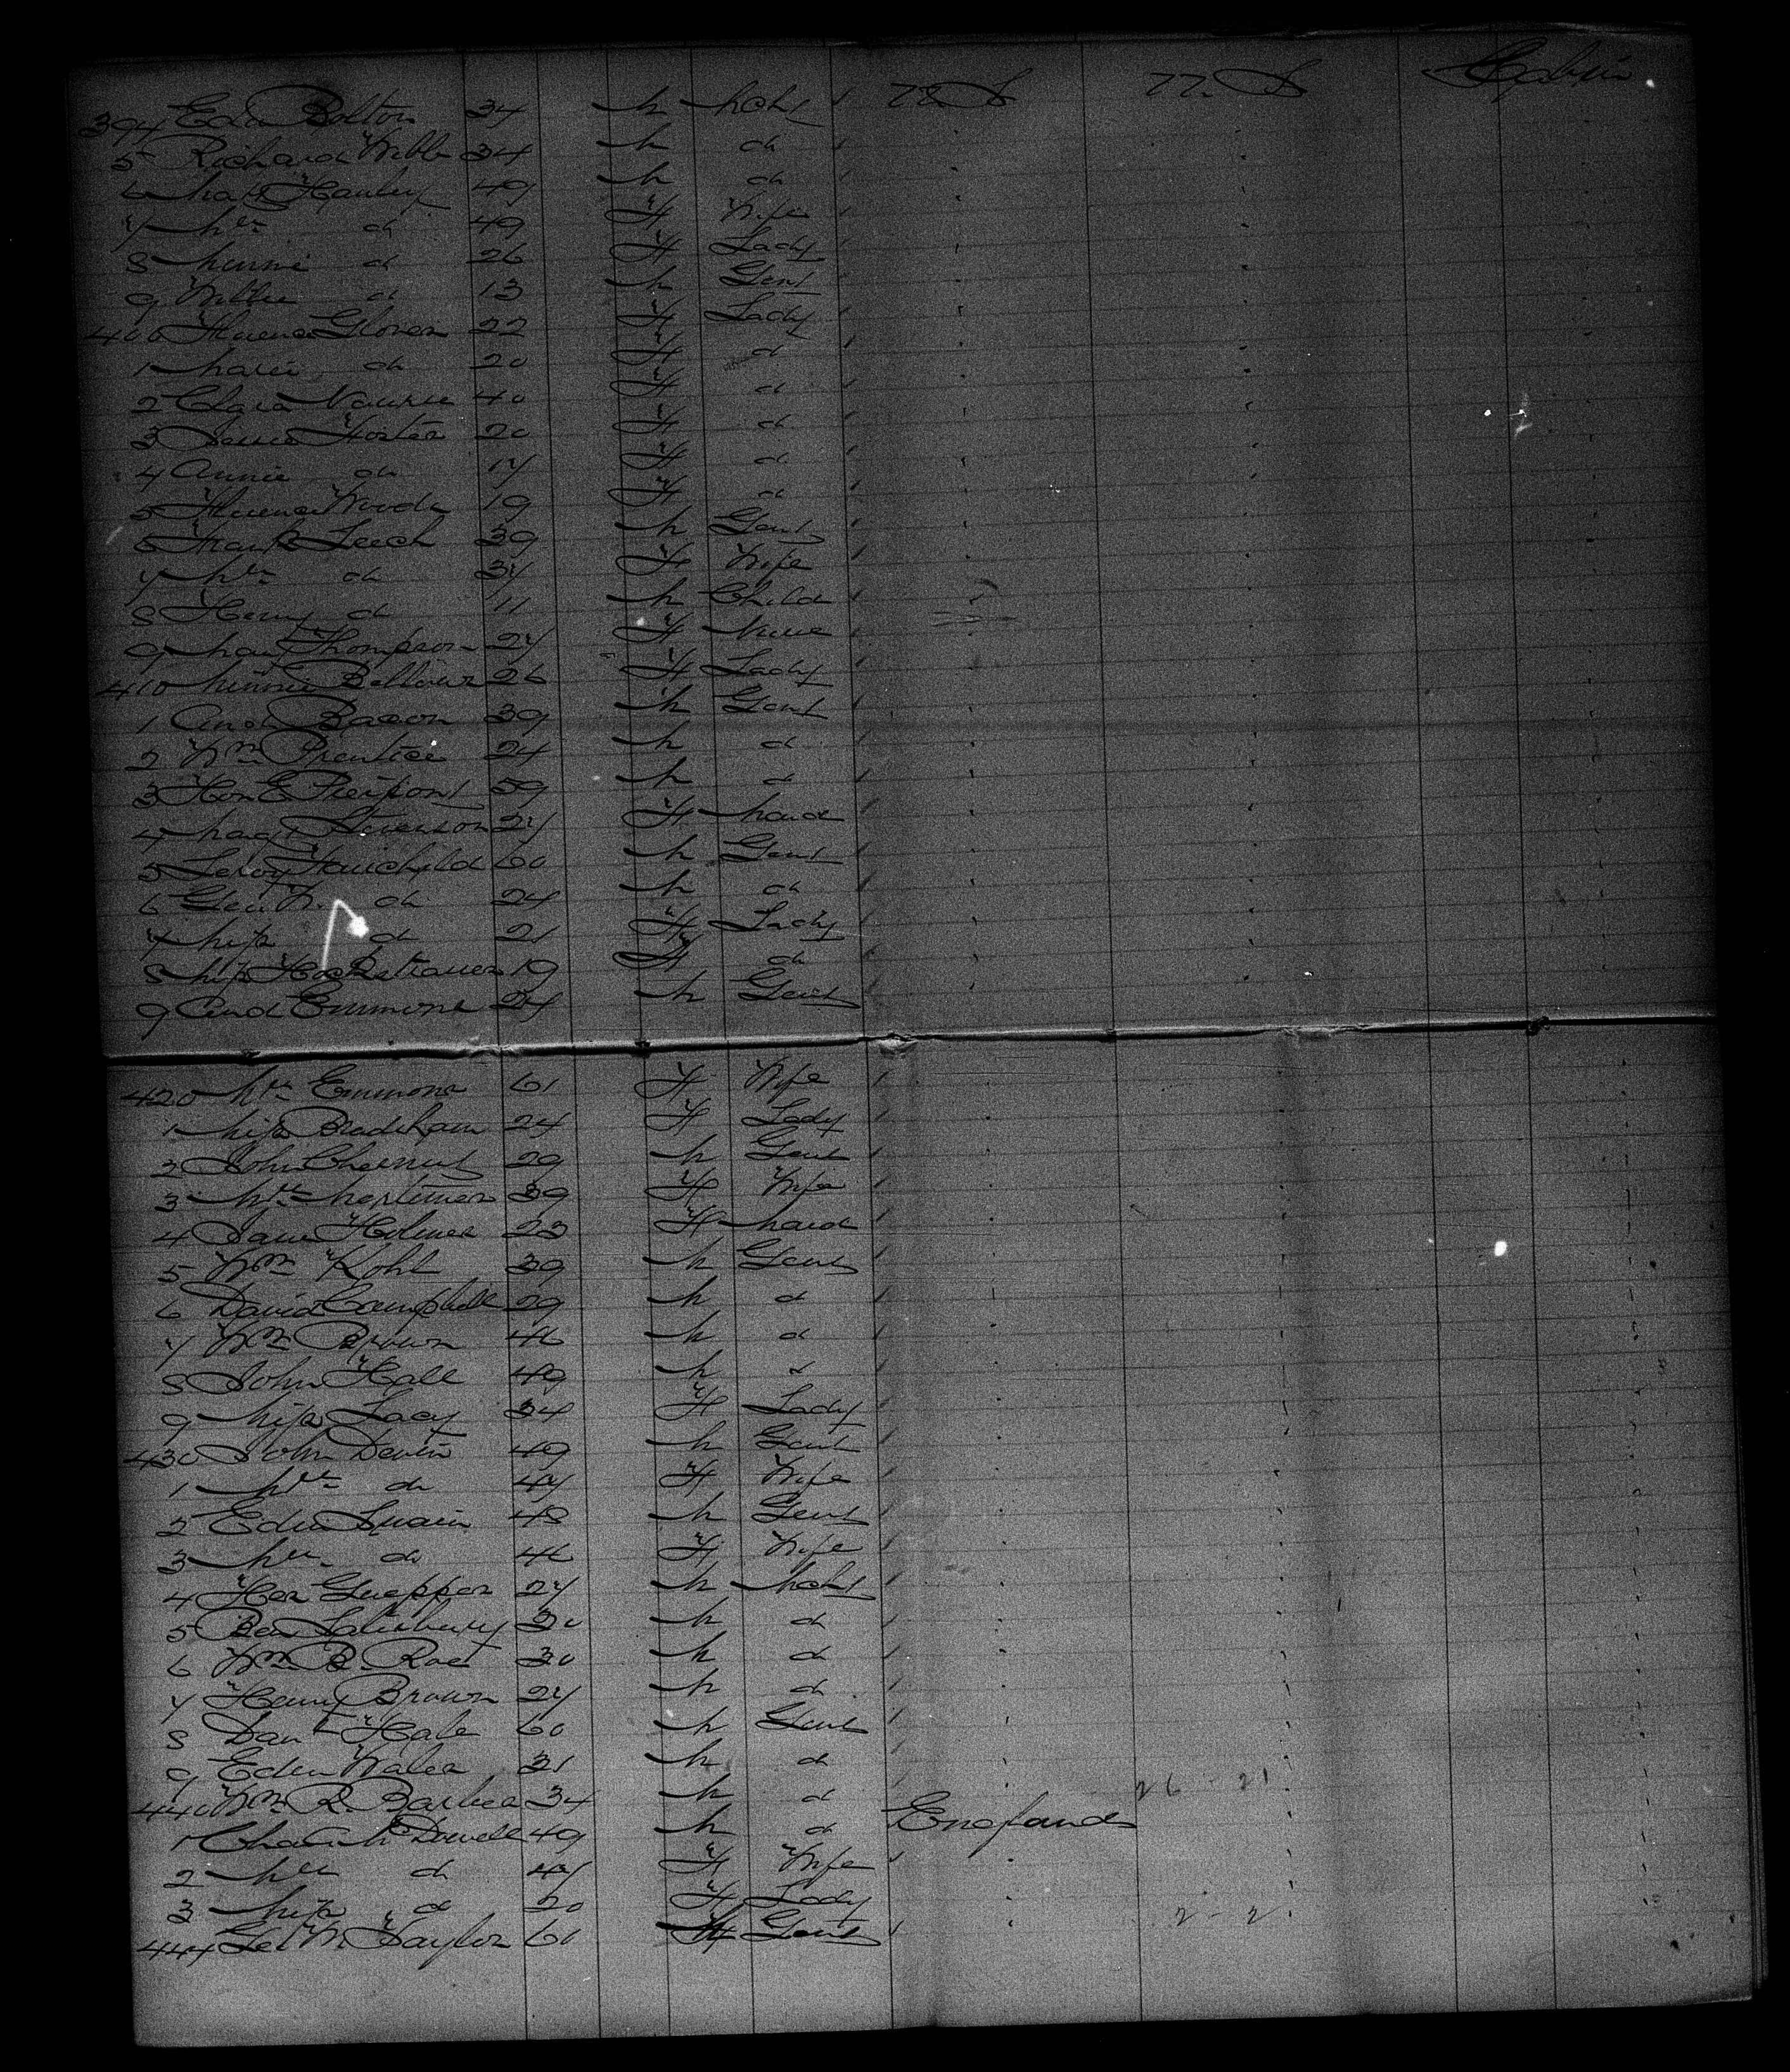 394 Edw Bolton 34 M Mcht U.S. U.S. Cabin
5 Richard Webb 34 M do
6 Hanley 49 M do
7 Mrs do 49 F Wife
8 Minnie do 26 F Lady
9 Willie do 13 M Gent
400 Florence Glover 22 F Lady
1 Marie do 20 F do
2 Clara Nourse 40 F do
3 Jessie Foster 20 F do
4 Annie do 17 F do
5 Florence Woods 19 F do
6 Frank Leech 39 M Gent
7 Mrs do 37 F Wife
8 Henry do 11 M Child
9 Mary Thompson 27 F Nurse
410 Minnie 26 F Lady
1 And Bacon 39 M Gent
2 Wm Prentice 24 M do
3 Hon E Pierpont 59 M do
4 Magt Stevenson 27 F Maid
5 Leroy Fairchild 60 M Gent
6 Geo. W. do 24 M do
7 Miss do 21 F Lady
8 Miss 19 F do
9 And Emmons 24 M Gent
420 Mrs Emmons 61 F Wife
1 Miss Bradsham 24 F Lady
2 John Chesnut 29 M Gent
3 Mrs Mortimer 39 F Wife
4 Jane Holmes 23 F Maid
5 Wm Kohl 39 M Gent
6 David Campbell 29 M do
7 Wm Brown 46 M do
8 John Hall 49 M do
9 Miss Lacy 34 F Lady
430 John Devin 49 M Gent
1 Mrs do 47 F Wife
2 Edw Swain 48 M Gent
3 Mrs do 46 F Wife
4 Her 27 M Mcht
5 Ben Salisbury 30 M do
6 Wm B. Roe 30 M do
7 Henry Brown 27 M do
8 Danl Hale 60 M Gent
9 Edw Wales 31 M do
440 Wm R. Barbee 34 M do 26 - 21
1 Chas McDowell 49 M do England
2 Mrs do 47 F Wife
3 Miss do 20 F Lady
444 Geo W. Taylor 60 M Gent 2 - 2